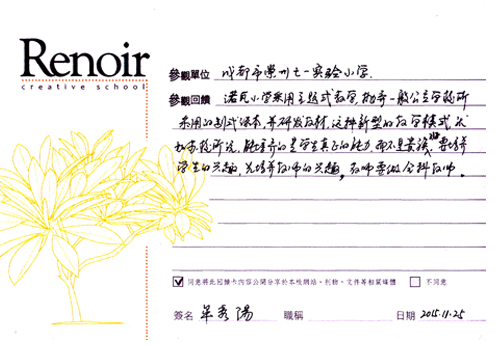 Renoir
creative school
參觀單位 成都市崇州七一实验小学.
參觀回饋 诺瓦小学采用主题式教学,抛弃一般公立学校所
采用的制式课本,并研发教材,这种新型的教学模式,
如校所说,能培养的是学生真正的能力,而不是
学生的兴趣,先培养教师的兴趣,教师要做全科教师。
同意將此回饋卡內容公開分享於本校網站、刊物、文件等相關媒體 不同意
簽名 陽 職稱 日期 2015.11.25